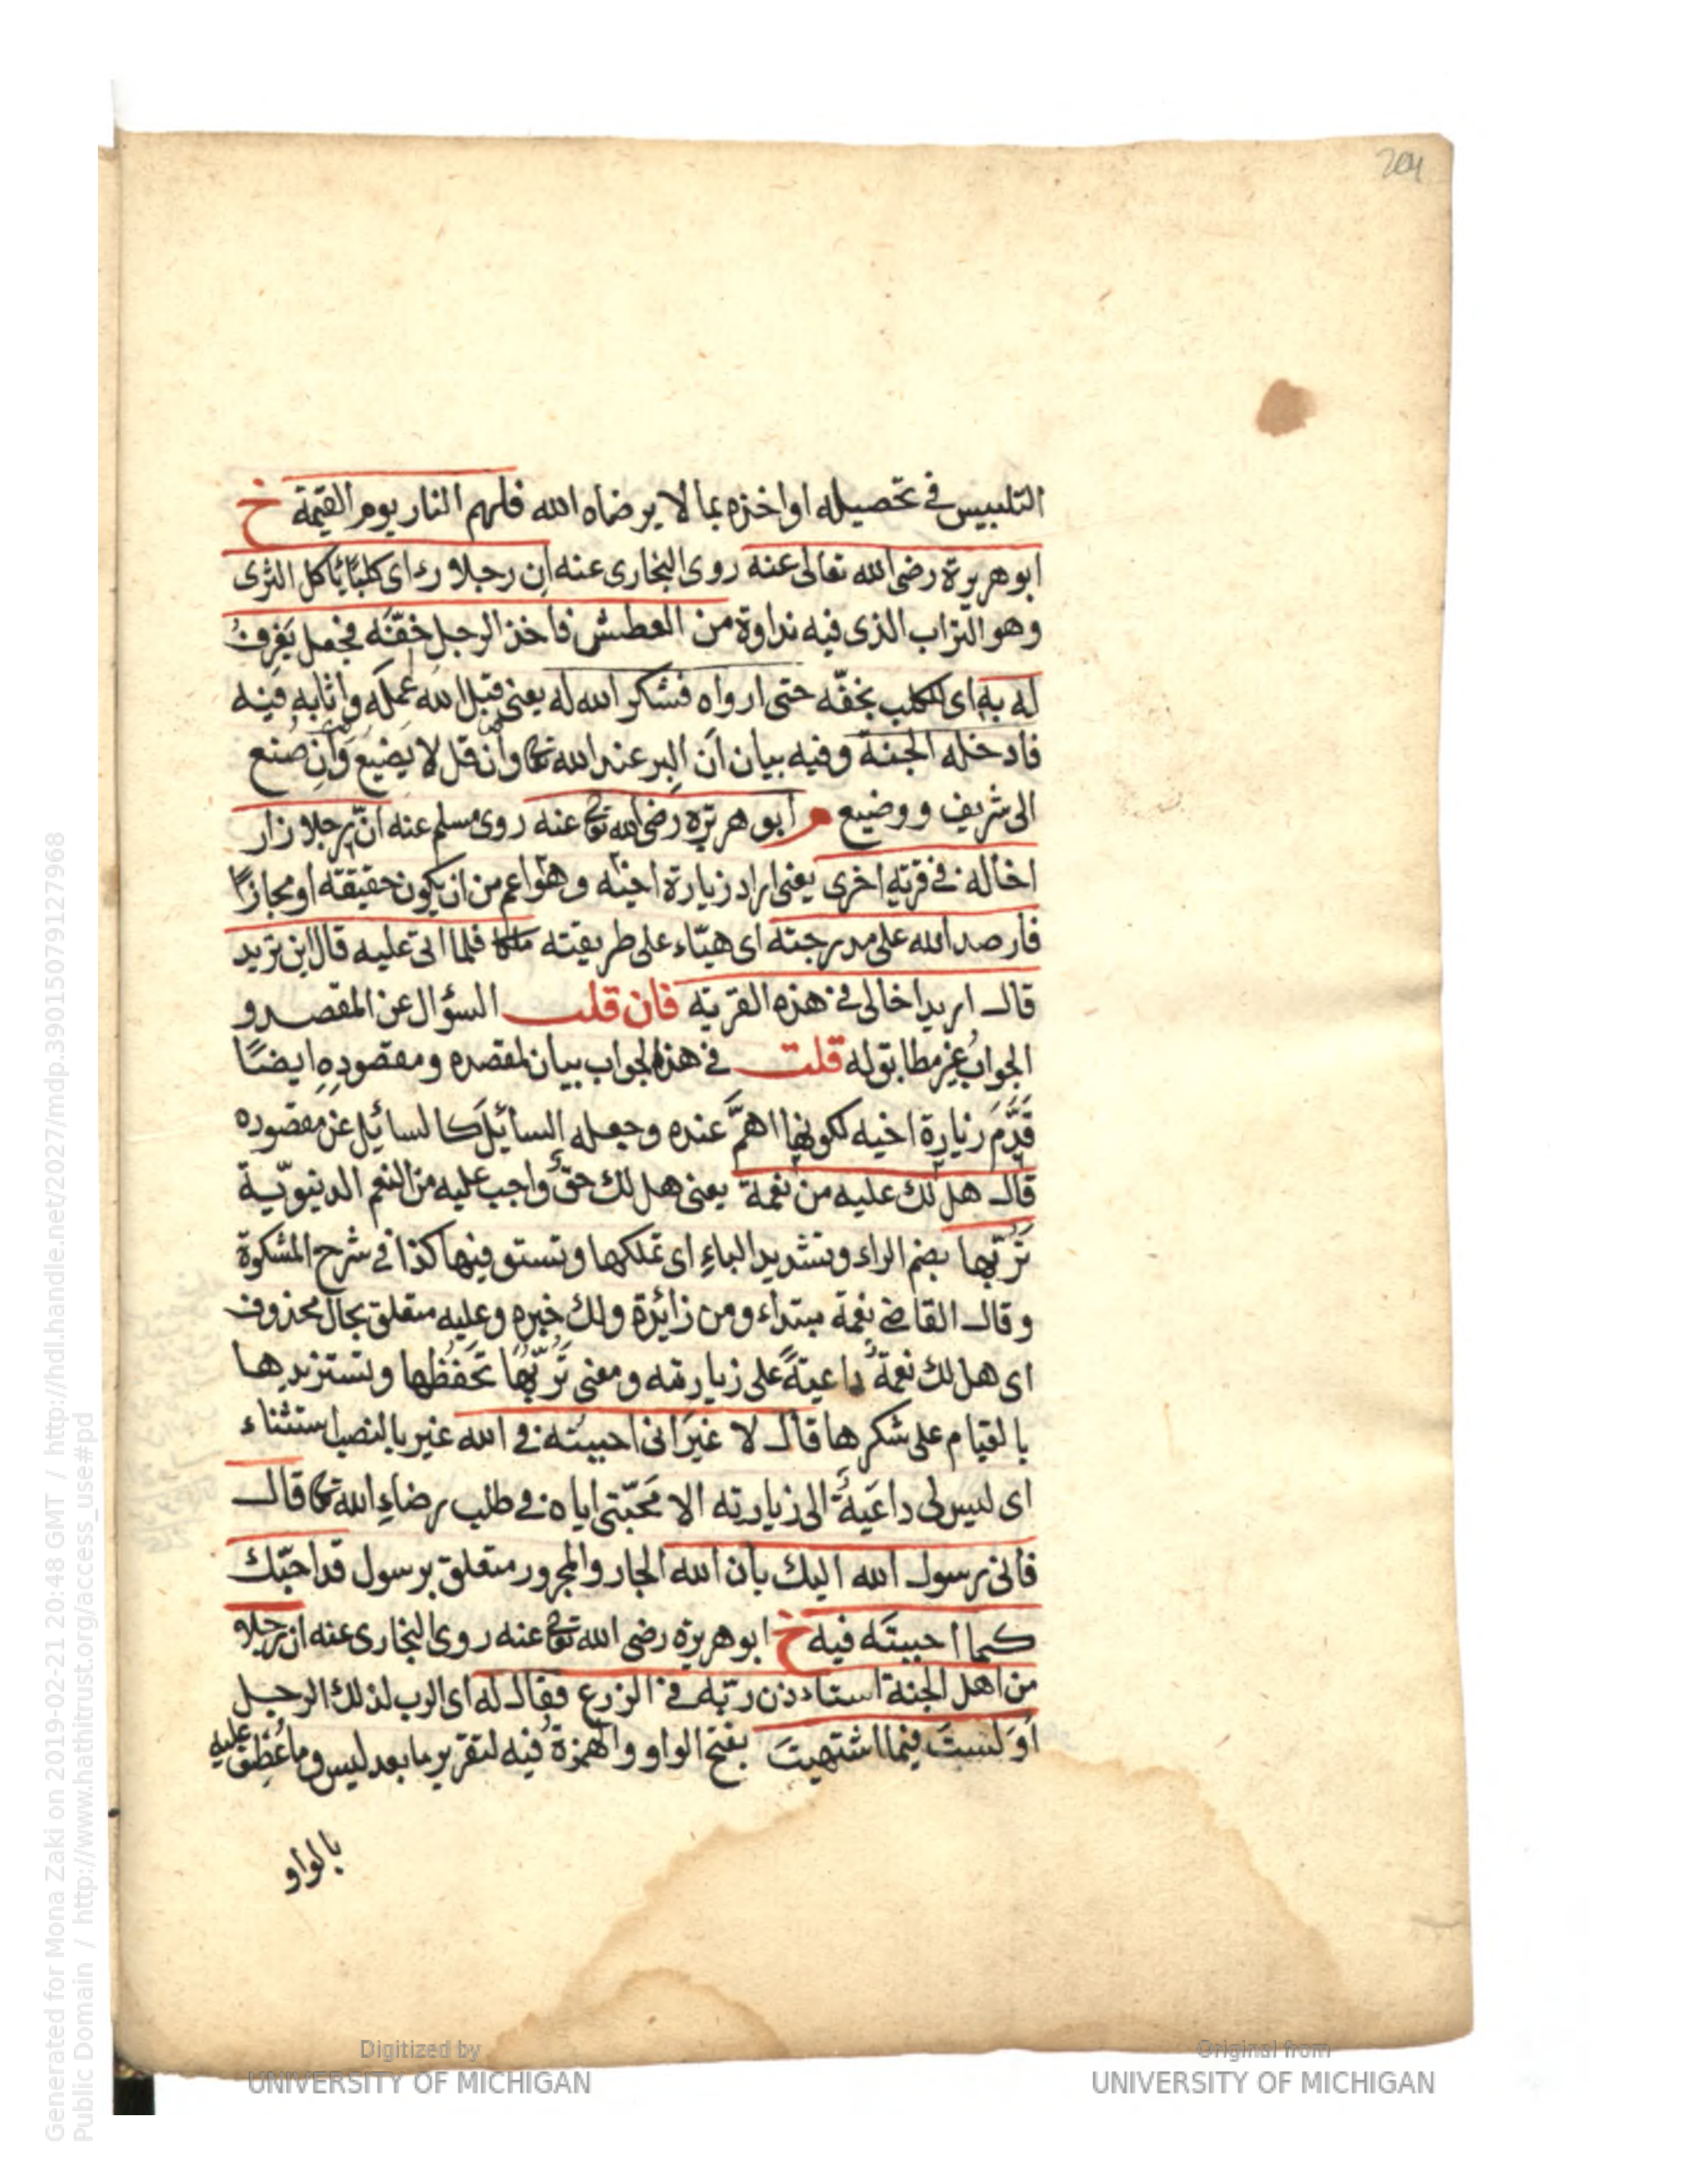 204
التلبيس فى تحصيله او اخذه بما لا يرضاه الله فلهم النار يوم القيمة خ
ابو هريرة رضى الله تعالى عنه روى البخارى عنه ان رجلا رءاى كلبًا يأكل الثرى
وهو التراب الذى فيه نداوة من العطش فاخذ الرجل خفّه فجعل يَغرِفُ
له به اى للكلب بخفّه حتى ارواه فشكر الله له يعنى قبل الله عمله واثابه فيه
فادخله الجنة وفيه بيان اَن البِر عند الله تعا وان قل لا يَضيع وان صُنع
الى شريف ووضيع م ابو هريرة رضى الله تعا عنه روى مسلم عنه انّ رجلا زار
اخا له فى قرية اخرى يعنى اراد زيارة اخيه وهو اعم من ان يكون حقيقة او مجازًا
فارصد الله على مدرجته اى هيّاء على طريقته ملكا فلما اتى عليه قال اين تريد
قال اريد اخا لى فى هذه القرية فان قلت السؤال عن المقصد و
الجوابُ غير مطابق له قلت فى هذه الجواب بيان لمقصده ومقصودِهِ ايضًا
قَدَّمَ زيارة اخيه لكونها اهمَّ عنده وجعله السائلَ كالسائل عن مقصوده
قال هل لك عليه من نعمة يعنى هل لك حقٌ واجب عليه من النعم الدنيويّة
تَرُبّها بضم الراء وتشديد الباءِ اى تملكها وتستوفيها كذا فى شرح المشكوة
وقال القاضى نعمة مبتداء ومن زائدة ولك خبره وعليه متعلق بحال محذوف
اى هل لك نعمةٌ داعيةً على زيارته ومعنى تَرُبّهُا تَحفَظُها وتستزيدها
بالقيام على شكرها قال لا غيرَ انى احببته فى الله غير بالنصب استثناء
اى ليس لى داعَيةٌ الى زيارته الا مَحَبّتى اياه فى طلب رضاءِ الله تعا قال
فانى رسول الله اليك بان الله الجار والمجرور متعلق برسول قد احبّك
كما احببتَه فيه خ ابو هريرة رضى الله تعا عنه روى البخارى عنه ان رجلا
من اهل الجنة استاءذن ربّه فى الزرع فقال له اى الرب لذلك الرجل
اَوَ لستَ فيما اشتهيتَ بفتح الواو والهمزة فيه لتقرير ما بعد ليس وما عُطِفَ عليه
بالواو
Generated for Mona Zaki on 2019-02-21 20:48 GMT / http://hdl.handle.net/2027/mdp.39015079127968
Public Domain / http://www.hathitrust.org/access_use#pd
Digitized by
UNIVERSITY OF MICHIGAN
Original from
UNIVERSITY OF MICHIGAN